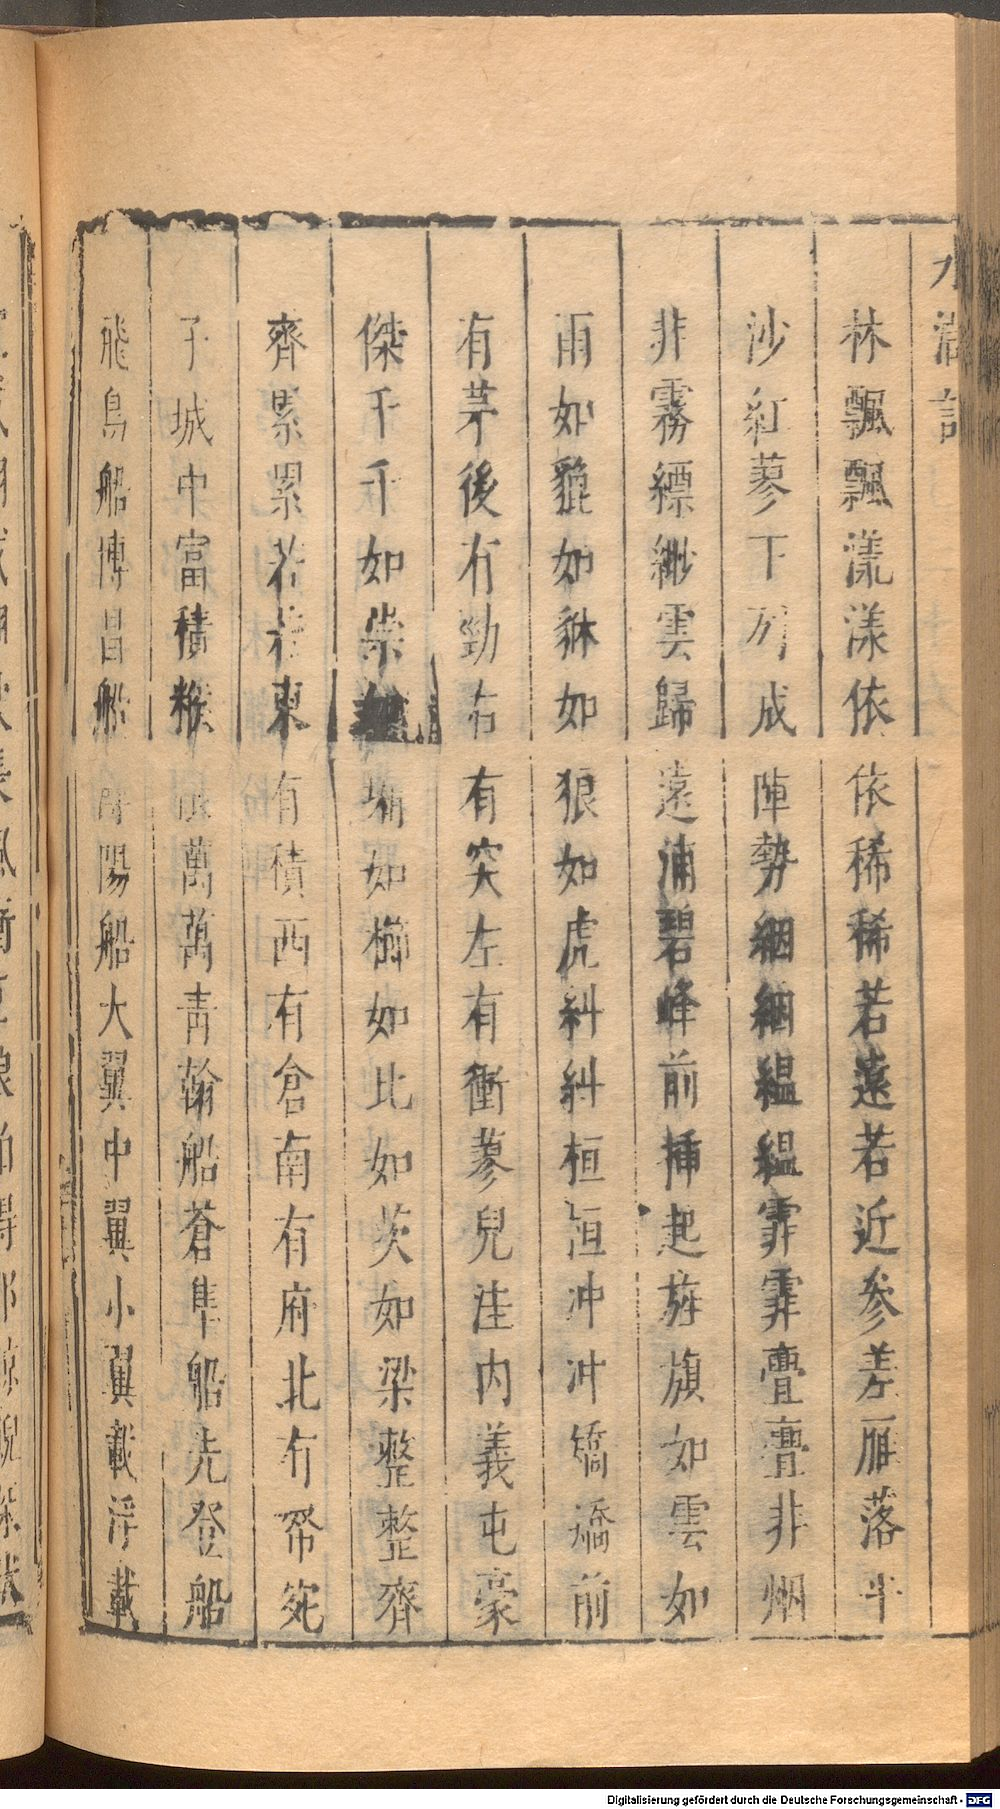 水滸記
林飄飄漾漾依依稀稀若遠若近參差雁落平
沙紅蓼下列成陣勢絪絪縕縕霏霏亹亹非烟
非霧縹緲雲歸遠浦碧峰前揷起旌旗如雲如
雨如貔如貅如狼如虎糾糾桓桓冲冲矯矯前
有茅後有勁右有突左有衝蓼兒洼內義屯豪
傑千千如崇如墉如櫛如比如茨如梁整整齊
齊累累若若東有積西有倉南有府北有帑宛
子城中富積糇糧萬萬青翰船蒼隼船先登船
飛鳥船博昌船陽船大翼中翼小翼載浮載
Digitalisierung gefördert durch die Deutsche Forschungsgemeinschaft - DFG